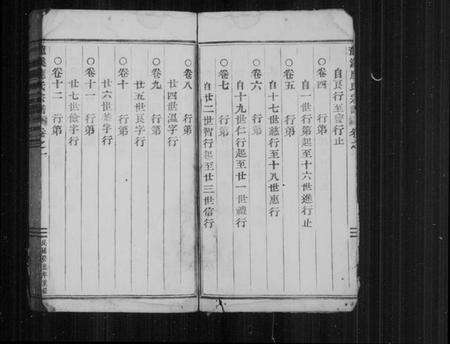 自艮行至慶行止
○卷四 行第
自一世行第起至十六世進行止
○卷五 行第
自十七世慈行至十八世惠行
○卷六 行第
自十九世仁行起至廿一世禮行
○卷七 行第
自廿二世智行起至廿三世信行
○卷八 行第
廿四世溫字行
○卷九 行第
廿五世良字行
○卷十 行第
廿六世恭字行
○卷十一 行第
廿七世儉字行
○卷十二 行第